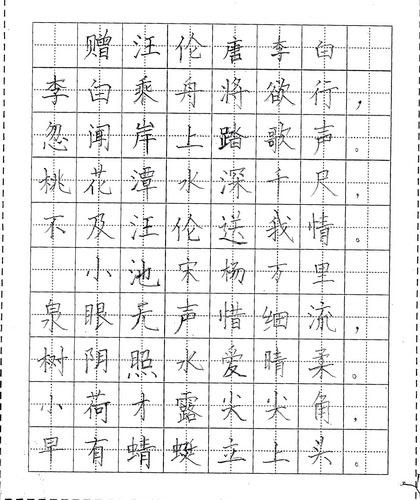 赠汪伦唐李白
李白乘舟将欲行，
忽闻岸上踏歌声。
桃花潭水深千尺，
不及汪伦送我情。
小池宋杨万里
泉眼无声惜细流，
树阴照水爱晴柔。
小荷才露尖尖角，
早有蜻蜓立上头。